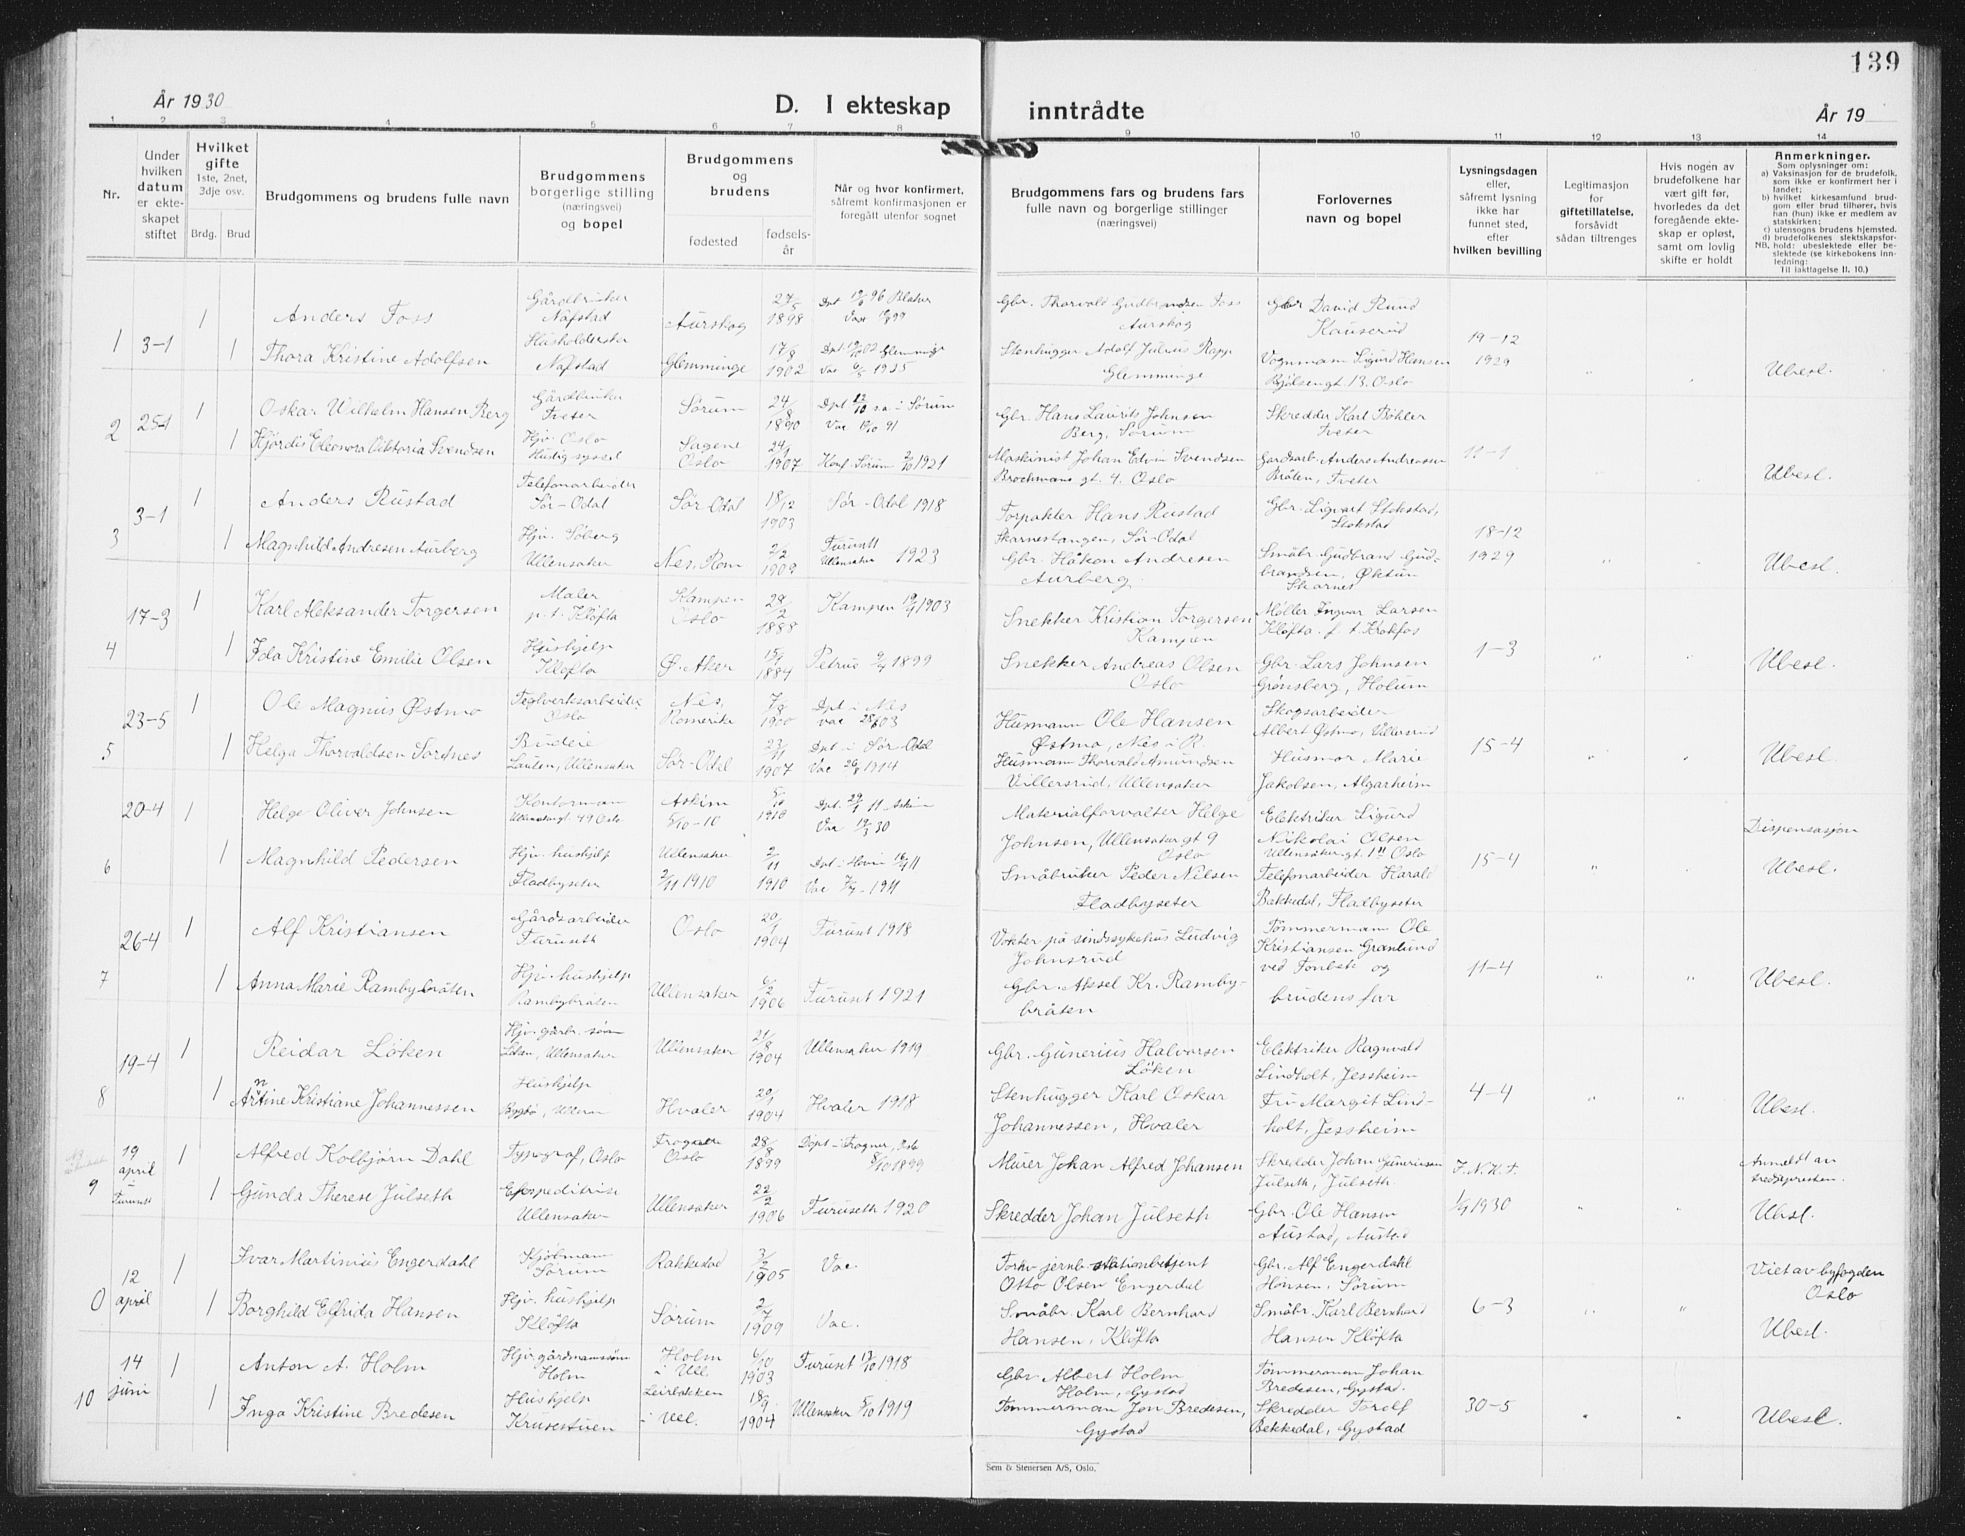 139
År 1930
D. I ekteskap inntrådte
År 19
1 2 3 4 5 6 7 8 9 10 11 12 13 14
Nr.
Under hvilken datum er ekteskapet stiftet
Hvilket gifte
1ste, 2net, 3dje osv.
Brdg. Brud
Brudgommens og brudens fulle navn
Brudgommens borgerlige stilling (næringsvei) og bopel
Brudgommens og brudens
fødested
fødselsår
Når og hvor konfirmert, såfremt konfirmasjonen er foregått utenfor sognet
Brudgommens fars og brudens fars fulle navn og borgerlige stillinger (næringsvei)
Forlovernes navn og bopel
Lysningsdagen eller, såfremt lysning ikke har funnet sted, efter hvilken bevilling
Legitimasjon for giftetillatelse, forsåvidt sådan tiltrenges
Hvis nogen av brudefolkene har vært gift før, hvorledes da det foregående ekteskap er opløst, samt om lovlig skifte er holdt
Anmerkninger.
Som oplysninger om:
a) Vaksinasjon for de brudefolk, som ikke er konfirmert her i landet;
b) hvilket kirkesamfund brudgom eller brud tilhører, hvis han (hun) ikke er medlem av statskirken;
c) utensogns brudens hjemsted.
d) brudefolkenes slektskapsforhold: ubeslektede eller beslektede (se kirkebokens innledning:
NB.
Til iakttagelse II. 10.)
1 3-1 1 Anders Foss Gårdbruker Nafstad Aurskog 27/8 1898 Gbr. Thorvald Gudbrandsen Foss Aurskog Gbr David Ruud Kauserud 19-12 1929
1 Thora Kristine Adolfsen Nafstad Glemminge 17/8 1902 Stenhugger Adolf Julius Rapp Glemminge Vognmann Sigurd Hansen Oslo Ubesl.
2 25-1 1 Oskar Wilhelm Hansen Berg Gårdbruker Tveter Sørum 24/8 1890 Gbr. Hans Laurits Johnsen Berg, Sørum Skredder Karl Bøhler Tveter 11-1
1 Hjørdis Eleonora Viktoria Svendsen Hjv. Oslo Huslig syssel Sagene Oslo 24/1 1907 Konf. Sørum 2/10 1921 Maskinist Johan Edvin Svendsen Brochmans gt. 9. Oslo Gardsarb. Anders Andreassen Bråten, Tveter Ubesl.
3 3-1 1 Anders Rustad Telefonarbeider Sør-Odal Sør-Odal 18/12 1903 Sør-Odal 1918 Forpakter Hans Rustad Skarnestangen, Sør-Odal Gbr. Sigvart Stokstad, Stokstad 18-12 1929
1 Magnhild Andresen Aurberg Hjv. Søberg Ullensaker Nes, Rom 2/2 1909 Furusett Ullensaker 1923 Gbr. Håkon Andresen Aurberg Småbr. Gudbrand Gudbrandsen, Skarnes Ubesl.
4 17-3 1 Karl Aleksander Torgersen Maler p.t. Kløfta Kampen Oslo 28/2 1888 Kampen 19/4 1903 Snekker Kristian Torgersen Kampen Møller Ingvar Larsen Kløfta 1-3
1 Ida Kristine Emilie Olsen Hushjelp Kløfta Ø. Aker 15/1 1884 Petrus 9/4 1899 Snekker Andreas Olsen Oslo Gbr. Lars Johnsen Grønsberg, Holum Ubesl.
5 23-5 1 Ole Magnus Østmo Teglverksarbeider Oslo Nes, Romerike 7/8 1900 Døpt i Nes Vac 28/8 03 Husmann Ole Hansen Østmo, Nes i R. Skogsarbeider Albert Østmo, Villersrud 15-4
1 Helga Thorvaldsen Sordnes Budeie Lauten, Ullensaker Sør-Odal 23/11 1907 Døpt i Sør-Odal Vac 26/8 1914 Husmann Thorvald Amundsen Villersrud, Ullensaker Husmor Marie Jakobsen, Algarheim Ubesl.
6 20-4 1 Helge Oliver Johnsen Kontormann Ullensakergt 49 Oslo Askim 5/10-10 5/10 1910 Døpt 29/1 11 Askim Vac 19/3 30 Materialforvalter Helge Johnsen, Ullensaker gt 9 Oslo Elektriker Sigurd Nikolai Olsen Ullensakergt. Oslo 15-4 Dispensasjon
1 Magnhild Pedersen Hjv. hushjelp Fladbyseter Ullensaker 2/11 1910 2/11 1910 Døpt i Hovin Vac 7/7-1911 Småbruker Peder Nilsen Fladbyseter Telefonarbeider Harald Bakkedal, Fladbyseter Ubesl.
7 26-4 1 Alf Kristiansen Gårdsarbeider Furuseth Oslo 20/1 1904 Furuset 1918 Vokter på sindssykehus Ludvig Johnsrud Tømmermann Ole Kristiansen Granlund ved Tonbek og brudens far 11-4
1 Anna Marie Rambybråten Hjv. hushjelp Rambybråten Ullensaker 6/2 1906 Furuset 1921 Gbr. Aksel Kr. Rambybråten Ubesl.
8 19-4 1 Reidar Løken Hjv. gårbr. sønn Løken, Ullensaker Ullensaker 21/8 1904 Ullensaker 1919 Gbr. Gunerius Halvorsen Løken Elektriker Ragnvald Lindholt, Jessheim 4-4
1 Antine Kristiane Johannessen Hushjelp Hvaler 20/1 1904 Hvaler 1918 Stenhugger Karl Oskar Johannessen, Hvaler Fru Margit Lindholt, Jessheim Ubesl.
9 19 april i Furusett 1 Alfred Kolbjørn Dahl Typograf, Oslo Frogner Oslo 28/8 1899 Døpt i Frogner, Oslo 8/10 1899 Murer Johan Alfred Johansen Skredder Johan Gunerius Julseth, Julseth F.N.K.F. 1/4 1930 Anmeldt av stedspresten.
1 Gunda Therese Julseth Ekspeditrise Ullensaker Ullensaker 22/2 1906 Furuseth 1920 Skredder Johan Julseth Gbr. Ole Hansen Austad, Austad Ubesl.
0 12 april 1 Ivar Martinius Engerdahl Kjøbmann Sørum Rakkestad 3/2 1905 Vac. Forhv jernb. stationbetjent Otto Olsen Engerdal Gbr. Alf Engerdahl Sørum 6-3 Viet av byfogden Oslo
1 Borghild Elfrida Hansen Hjv. hushjelp Kløfta Sørum 2/7 1909 Vac. Småbr. Karl Bernhard Hansen, Kløfta Småbr. Karl Bernhard Hansen Kløfta Ubesl.
10 14 juni 1 Anton A. Holm Hjv. gårdmannsønn Holm Holm i Ull 6/10 1903 Furuset 13/10 1918 Gbr Albert Holm Holm, Gystad Tømmermann Johan Bredesen, Gystad. 30-5
1 Inga Kristine Bredesen Hushjelp Krusestuen Leirbakken i Ull. 18/9 1904 Ullensaker 5/10 1919 Tømmermann Jon Bredesen, Gystad Skredder Torolf Bekkedal, Gystad Ubesl.
Sem & Stenersen A/S, Oslo.